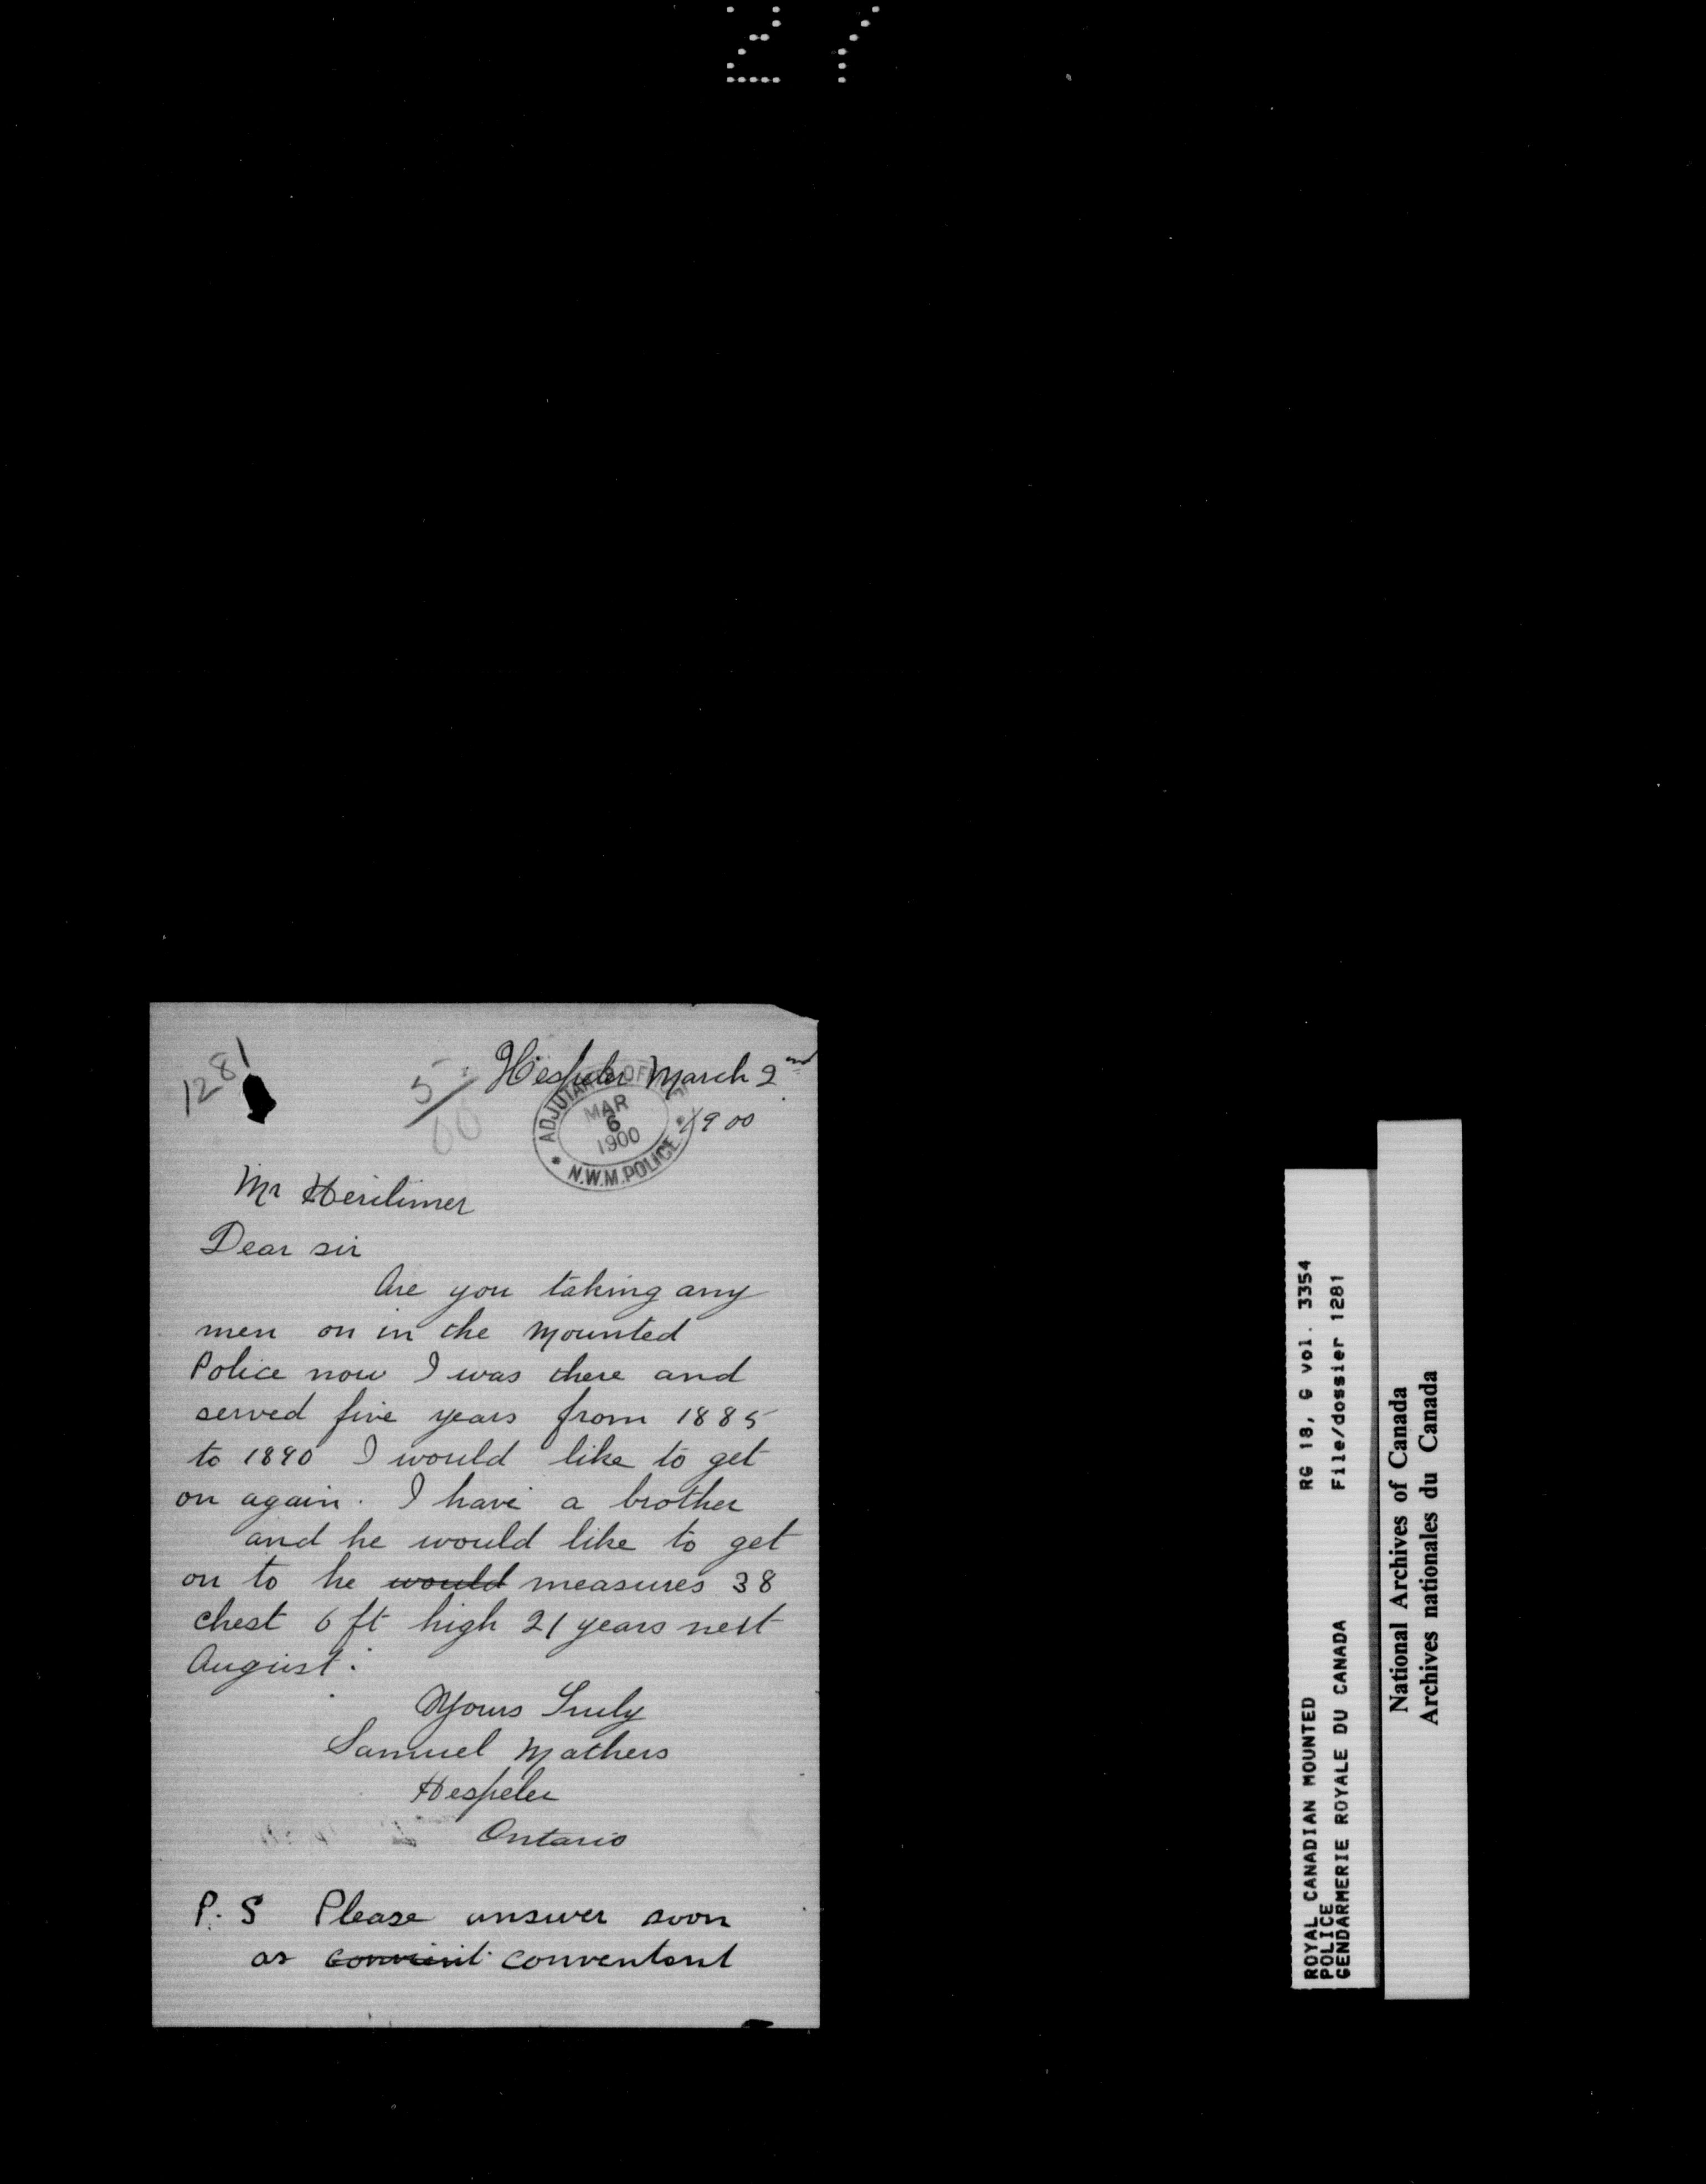 27
1281
5
60
Hespeler March 2nd
1900
ADJUTANT'S OFFICE
MAR
6
1900
N.W.M.POLICE
Mr Heritimer
Dear sir
Are you taking any
men on in the Mounted
Police now I was there and
served five years from 1885
to 1890 I would like to get
on again. I have a brother
and he would like to get
on to he would measures 38
chest 6 ft high 21 years next
August.
Yours Truly
Samuel Mathers
Hespeler
Ontario
P.S Please answer soon
as convinit conventant
ROYAL CANADIAN MOUNTED
POLICE
GENDARMERIE ROYALE DU CANADA
RG 18, G vol. 3354
File/dossier 1281
National Archives of Canada
Archives nationales du Canada